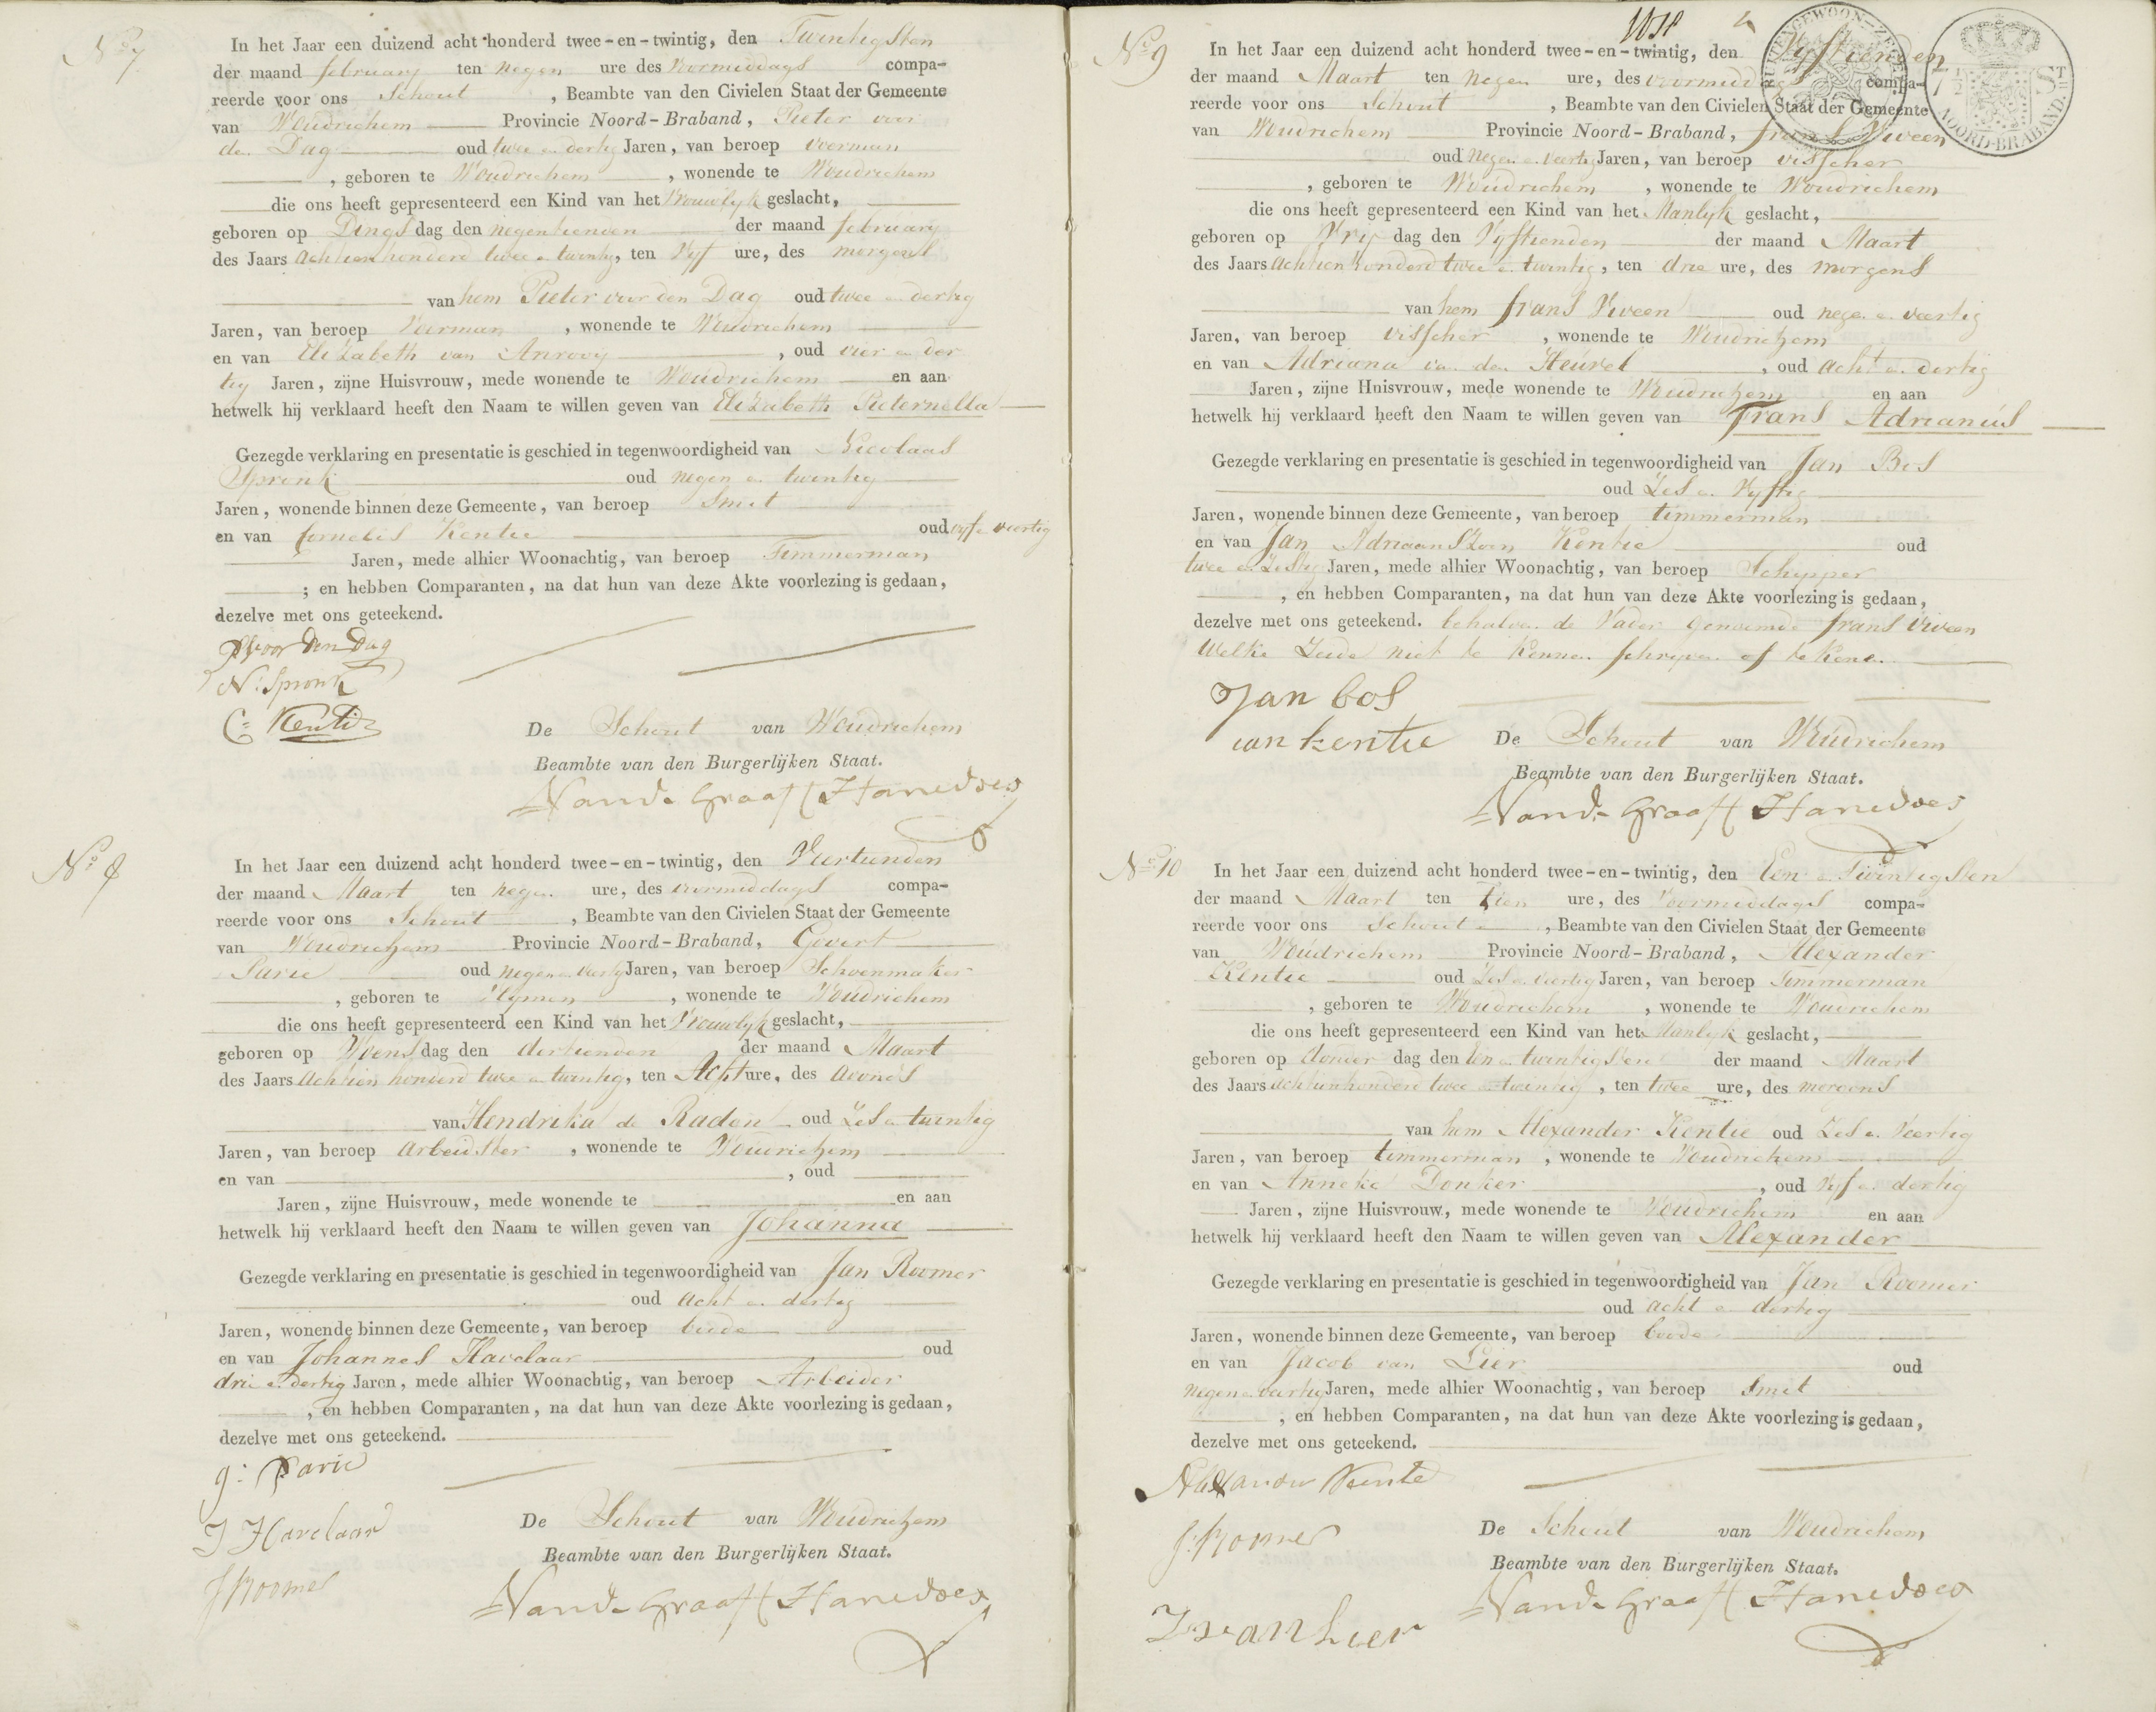 No 7
In het Jaar een duizend acht honderd twee-en-twintig, den Twintigsten
der maand february ten negen ure des voormiddags compa-
reerde voor ons Schout , Beambte van den Civielen Staat der Gemeente
van Woudrichem Provincie Noord-Braband, Pieter voor
den Dag oud twee en dertig Jaren, van beroep Voerman
, geboren te Woudrichem , wonende te Woudrichem
die ons heeft gepresenteerd een Kind van het Vrouwlyk geslacht,
geboren op Dings dag den negentienden der maand february
des Jaars achttien honderd twee en twintig, ten Vyf ure, des morgens
van hem Pieter voor den Dag oud twee en dertig
Jaren, van beroep Voerman , wonende te Woudrichem
en van Elizabeth van Anrooy , oud vier en der
tig Jaren, zijne Huisvrouw, mede wonende te Woudrichem en aan
hetwelk hij verklaard heeft den Naam te willen geven van Elizabeth Pieternella
Gezegde verklaring en presentatie is geschied in tegenwoordigheid van Nicolaas
Spronk oud negen en twintig
Jaren, wonende binnen deze Gemeente, van beroep Smit
en van Cornelis Kentie oud vyf en veertig
Jaren, mede alhier Woonachtig, van beroep Timmerman
; en hebben Comparanten, na dat hun van deze Akte voorlezing is gedaan,
dezelve met ons geteekend.
P voor den Dag
N: Spronk
C: Kentie
De Schout van Woudrichem
Beambte van den Burgerlijken Staat.
Vand. Graaff Hanedoes
No 8
In het Jaar een duizend acht honderd twee-en-twintig, den Veertienden
der maand Maart ten negen ure, des voormiddags compa-
reerde voor ons Schout , Beambte van den Civielen Staat der Gemeente
van Woudrichem Provincie Noord-Braband, Govert
Parie oud negen en veertig Jaren, van beroep Schoenmaker
, geboren te Hymen , wonende te Woudrichem
die ons heeft gepresenteerd een Kind van het Vrouwlyk geslacht,
geboren op Woens dag den dertienden der maand Maart
des Jaars Achttien honderd twee en twintig, ten Acht ure, des avonds
van Hendrika de Raden oud Zes en twintig
Jaren, van beroep arbeidster , wonende te Woudrichem
en van , oud
Jaren, zijne Huisvrouw, mede wonende te en aan
hetwelk hij verklaard heeft den Naam te willen geven van Johanna
Gezegde verklaring en presentatie is geschied in tegenwoordigheid van Jan Roomer
oud acht en dertig
Jaren, wonende binnen deze Gemeente, van beroep bode
en van Johannes Havelaar oud
drie en dertig Jaren, mede alhier Woonachtig, van beroep Arbeider
, en hebben Comparanten, na dat hun van deze Akte voorlezing is gedaan,
dezelve met ons geteekend.
g: Parie
J Havelaar
J Roomer
De Schout van Woudrichem
Beambte van den Burgerlijken Staat.
Vand. Graaff Hanedoes
No 9
In het Jaar een duizend acht honderd twee-en-twintig, den Vyftienden
der maand Maart ten negen ure, des voormiddags compa-
reerde voor ons Schout , Beambte van den Civielen Staat der Gemeente
van Woudrichem Provincie Noord-Braband, frans Viveen
oud Negen en Veertig Jaren, van beroep visscher
, geboren te Woudrichem , wonende te Woudrichem
die ons heeft gepresenteerd een Kind van het Manlyk geslacht,
geboren op Vry dag den Vyftienden der maand Maart
des Jaars achttien honderd twee en twintig, ten drie ure, des morgens
van hem frans Viveen oud negen en veertig
Jaren, van beroep visscher , wonende te Woudrichem
en van Adriana van den Heuvel , oud acht en dertig
Jaren, zijne Huisvrouw, mede wonende te Woudrichem en aan
hetwelk hij verklaard heeft den Naam te willen geven van Frans Adrianus
Gezegde verklaring en presentatie is geschied in tegenwoordigheid van Jan Bos
oud Zes en Vyftig
Jaren, wonende binnen deze Gemeente, van beroep timmerman
en van Jan Adriaanszoon Kentie oud
twee en Zestig Jaren, mede alhier Woonachtig, van beroep Schipper
, en hebben Comparanten, na dat hun van deze Akte voorlezing is gedaan,
dezelve met ons geteekend. behalven de Vader genaemd frans Viveen
Welke Zeide niet te Konnen schryven of tekene.
Jan bos
ian kentie
De Schout van Woudrichem
Beambte van den Burgerlijken Staat.
Vand. Graaff Hanedoes
BUITENGEWOON-ZEGEL
7 1/2 ST
NOORD-BRABAND.
No 10
In het Jaar een duizend acht honderd twee-en-twintig, den Een en Twintigsten
der maand Maart ten tien ure, des Voormiddags compa-
reerde voor ons Schout , Beambte van den Civielen Staat der Gemeente
van Woudrichem Provincie Noord-Braband, Alexander
Kentie oud Zes en veertig Jaren, van beroep Timmerman
, geboren te Woudrichem , wonende te Woudrichem
die ons heeft gepresenteerd een Kind van het Manlyk geslacht,
geboren op donder dag den Een en twintigsten der maand Maart
des Jaars achttienhonderd twee en twintig , ten twee ure, des morgens
van hem Alexander Kentie oud Zes en Veertig
Jaren, van beroep timmerman , wonende te Woudrichem
en van Anneke Donker , oud Vyf en dertig
Jaren, zijne Huisvrouw, mede wonende te Woudrichem en aan
hetwelk hij verklaard heeft den Naam te willen geven van Alexander
Gezegde verklaring en presentatie is geschied in tegenwoordigheid van Jan Roomer
oud acht en dertig
Jaren, wonende binnen deze Gemeente, van beroep bode
en van Jacob van Lier oud
negen en veertig Jaren, mede alhier Woonachtig, van beroep Smit
; en hebben Comparanten, na dat hun van deze Akte voorlezing is gedaan,
dezelve met ons geteekend.
Alexander Kentie
J: Roomer
J: van Lier
De Schout van Woudrichem
Beambte van den Burgerlijken Staat.
Vand. Graaff Hanedoes